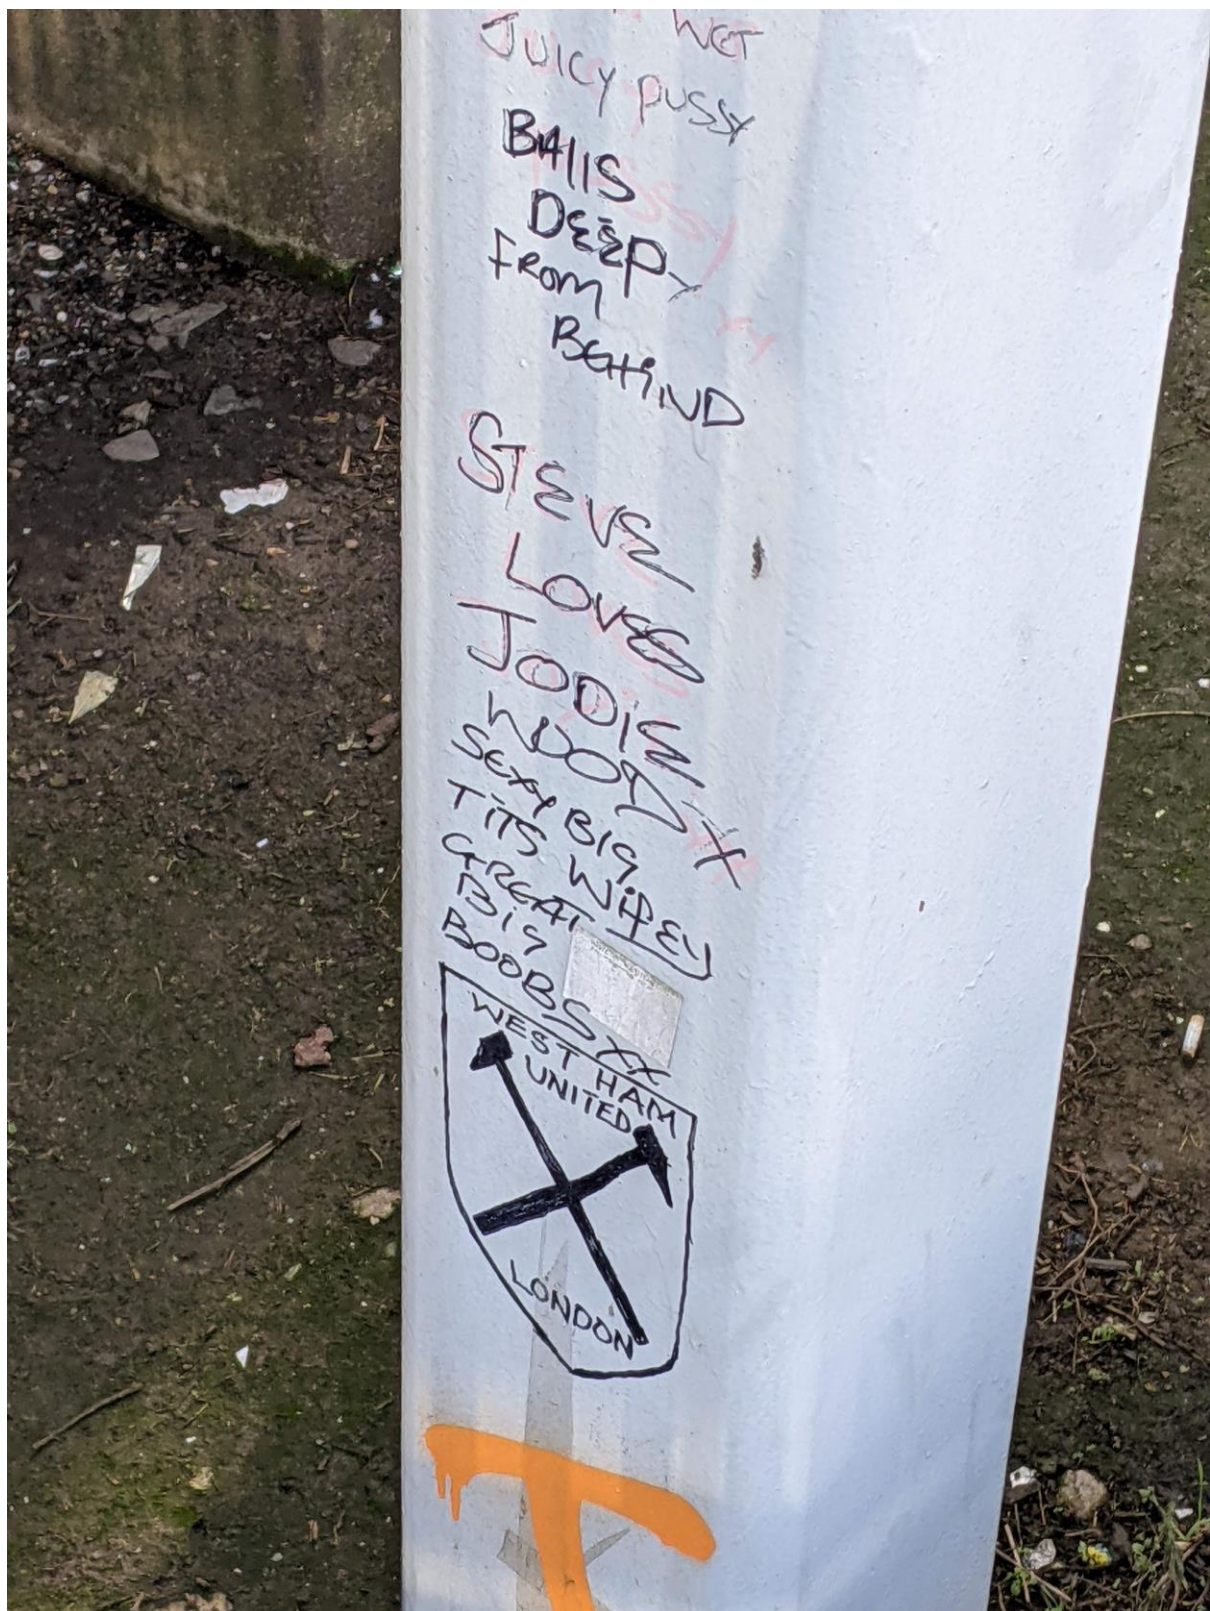 WET
JUICY PUSSY
BAllS
DEEP
FROM
BEHiND
STEVE
LOVES
JODiE
SEXY BIG
TiTS WiFEY
GREAT
BiG
BOOBS XX
WEST HAM
UNITED
LONDON